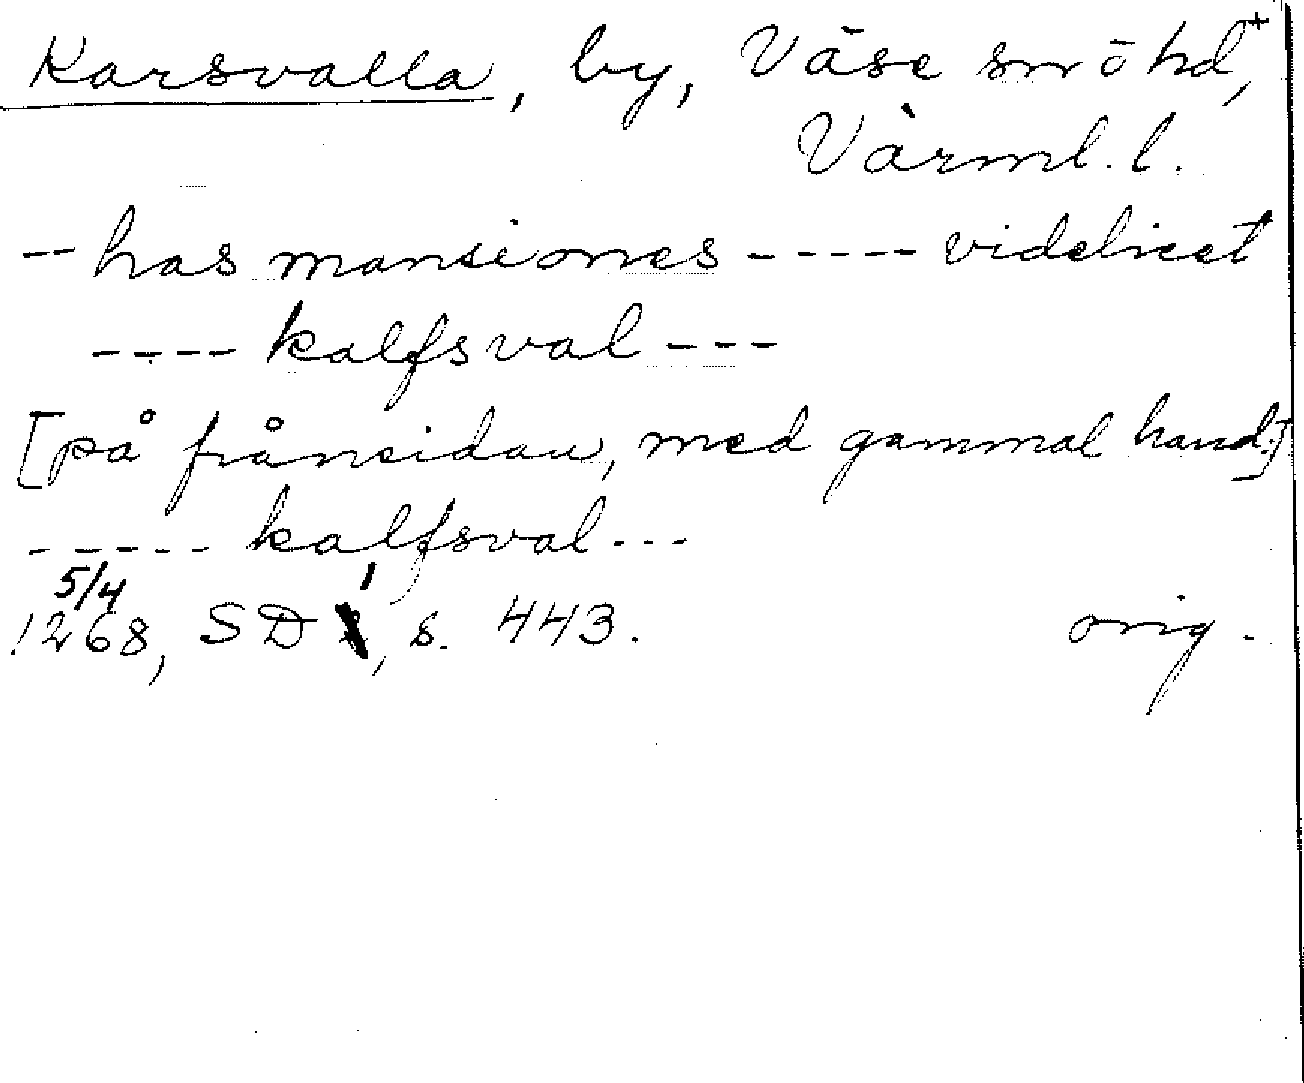 Karsvalla, by, Väse sn o hd,+
Värml. l.
-- has mansiones ----- videlicet
---- kalfsval ---
[på frånsidan, med gammal hand:]
----- kalfsval ---
5/4 1
1268, SD , s. 443. orig.